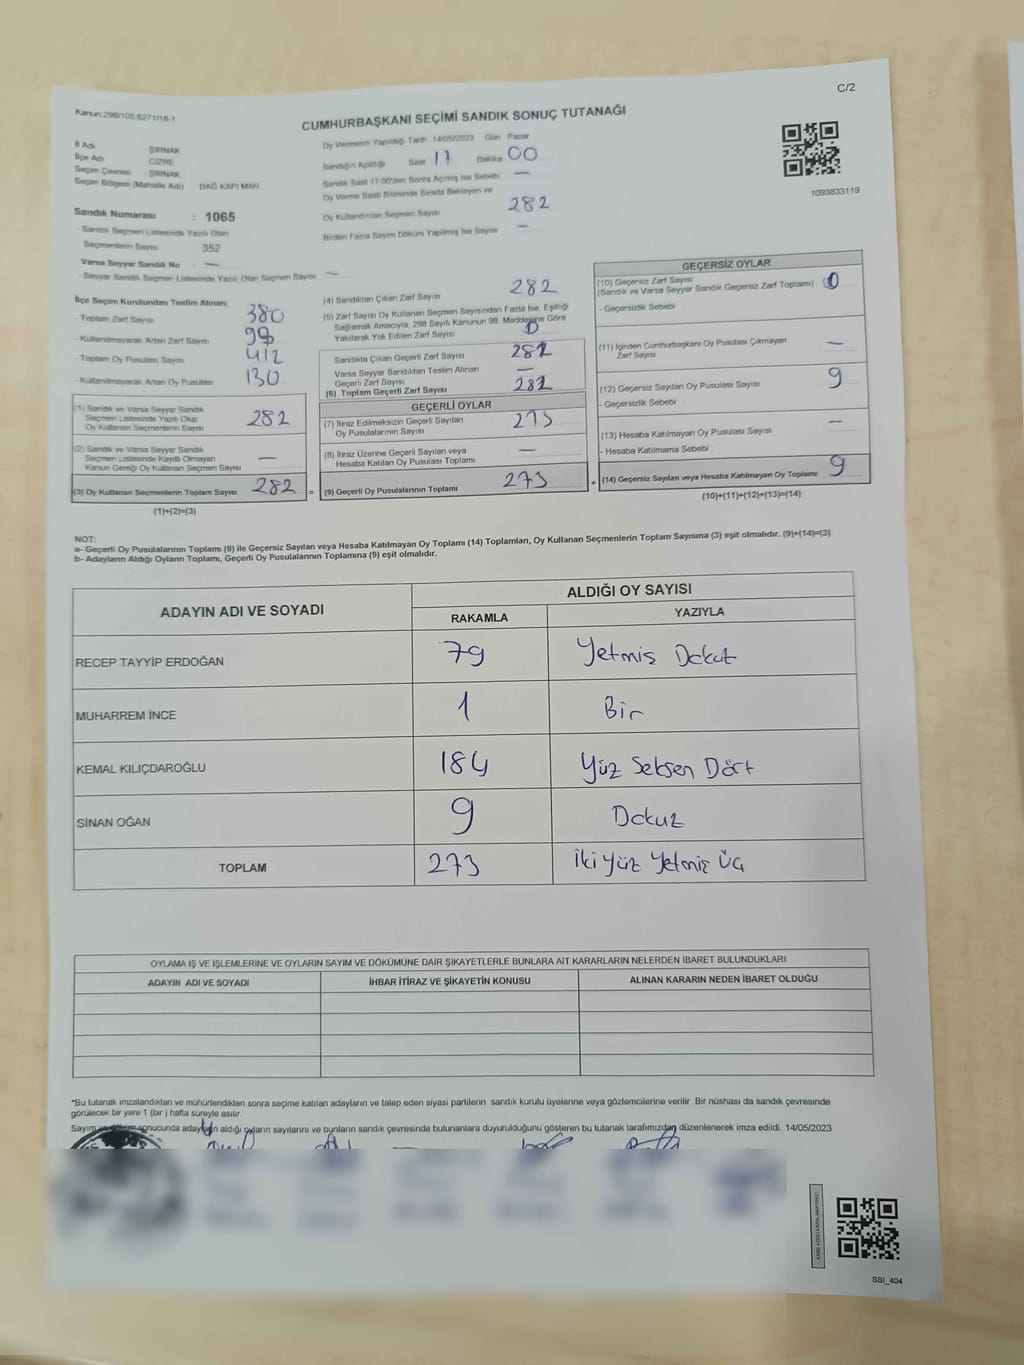 C/2
Kanun:298/105;6271/16-1
CUMHURBAŞKANI SEÇİMİ SANDIK SONUÇ TUTANAĞI
İl Adı : ŞIRNAK
İlçe Adı CİZRE
Seçim Çevresi : ŞIRNAK
Seçim Bölgesi (Mahalle Adı) DAĞ KAPI MAH
Sandık Numarası : 1065
- Sandık Seçmen Listesinde Yazılı Olan
Seçmenlerin Sayısı 352
Varsa Seyyar Sandık No : —
- Seyyar Sandık Seçmen Listesinde Yazılı Olan Seçmen Sayısı —
Oy Vermenin Yapıldığı Tarih :14/05/2023 Gün Pazar
Sandığın Açıldığı Saat 17 Dakika 00
Sandık Saat 17:00'den Sonra Açılmış İse Sebebi —
Oy Verme Saati Bitiminde Sırada Bekleyen ve
Oy Kullandırılan Seçmen Sayısı 282
Birden Fazla Sayım Döküm Yapılmış İse Sayısı —
1093833119
İlçe Seçim Kurulundan Teslim Alınan;
- Toplam Zarf Sayısı 380
- Kullanılmayarak Artan Zarf Sayısı 98
- Toplam Oy Pusulası Sayısı 412
- Kullanılmayarak Artan Oy Pusulası 130
(1) Sandık ve Varsa Seyyar Sandık
Seçmen Listesinde Yazılı Olup
Oy Kullanan Seçmenlerin Sayısı 282
(2) Sandık ve Varsa Seyyar Sandık
Seçmen Listesinde Kayıtlı Olmayan
Kanun Gereği Oy Kullanan Seçmen Sayısı —
(3) Oy Kullanan Seçmenlerin Toplam Sayısı 282 =
(1)+(2)=(3)
(4) Sandıktan Çıkan Zarf Sayısı 282
(5) Zarf Sayısı Oy Kullanan Seçmen Sayısından Fazla İse, Eşitliği
Sağlamak Amacıyla, 298 Sayılı Kanunun 98. Maddesine Göre
Yakılarak Yok Edilen Zarf Sayısı 0
Sandıkta Çıkan Geçerli Zarf Sayısı 282
Varsa Seyyar Sandıktan Teslim Alınan
Geçerli Zarf Sayısı —
(6) Toplam Geçerli Zarf Sayısı 282
GEÇERLİ OYLAR
(7) İtiraz Edilmeksizin Geçerli Sayılan
Oy Pusulalarının Sayısı 273
(8) İtiraz Üzerine Geçerli Sayılan veya
Hesaba Katılan Oy Pusulası Toplamı —
(9) Geçerli Oy Pusulalarının Toplamı 273 +
GEÇERSİZ OYLAR
(10) Geçersiz Zarf Sayısı
(Sandık ve Varsa Seyyar Sandık Geçersiz Zarf Toplamı) 0
- Geçersizlik Sebebi :
(11) İçinden Cumhurbaşkanı Oy Pusulası Çıkmayan
Zarf Sayısı —
(12) Geçersiz Sayılan Oy Pusulası Sayısı 9
- Geçersizlik Sebebi :
(13) Hesaba Katılmayan Oy Pusulası Sayısı —
- Hesaba Katılmama Sebebi :
(14) Geçersiz Sayılan veya Hesaba Katılmayan Oy Toplamı 9
(10)+(11)+(12)+(13)=(14)
NOT:
a- Geçerli Oy Pusulalarının Toplamı (9) ile Geçersiz Sayılan veya Hesaba Katılmayan Oy Toplamı (14) Toplamları, Oy Kullanan Seçmenlerin Toplam Sayısına (3) eşit olmalıdır. (9)+(14)=(3)
b- Adayların Aldığı Oyların Toplamı, Geçerli Oy Pusulalarının Toplamına (9) eşit olmalıdır.
ADAYIN ADI VE SOYADI ALDIĞI OY SAYISI
RAKAMLA YAZIYLA
RECEP TAYYİP ERDOĞAN 79 Yetmiş Dokuz
MUHARREM İNCE 1 Bir
KEMAL KILIÇDAROĞLU 184 Yüz Seksen Dört
SİNAN OĞAN 9 Dokuz
TOPLAM 273 İki Yüz Yetmiş Üç
OYLAMA İŞ VE İŞLEMLERİNE VE OYLARIN SAYIM VE DÖKÜMÜNE DAİR ŞİKAYETLERLE BUNLARA AİT KARARLARIN NELERDEN İBARET BULUNDUKLARI
ADAYIN ADI VE SOYADI İHBAR İTİRAZ VE ŞİKAYETİN KONUSU ALINAN KARARIN NEDEN İBARET OLDUĞU
*Bu tutanak imzalandıktan ve mühürlendikten sonra seçime katılan adayların ve talep eden siyasi partilerin sandık kurulu üyelerine veya gözlemcilerine verilir .Bir nüshası da sandık çevresinde
görülecek bir yere 1 (bir ) hafta süreyle asılır.
Sayım sonucunda adayların aldığı oyların sayılarını ve bunların sandık çevresinde bulunanlara duyurulduğunu gösteren bu tutanak tarafımızdan düzenlenerek imza edildi. 14/05/2023
SSI_404